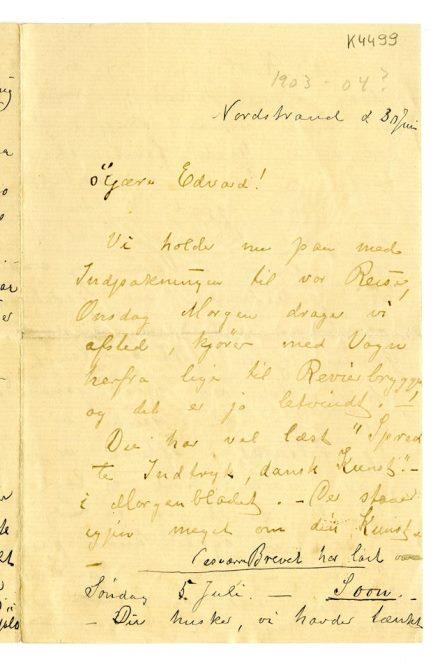 K4499
1903 - 04?
Nordstrand d 30 Juni
Kjære Edvard!
Vi holder nu paa med
Indpakningen til vor Reise,
Onsdag Morgen drager vi
afsted, kjører med Vogn
herfra lige til Revierbryggen
og det er jo letvindt! —
Du har vel læst "Spred
te Indtryk, dansk Kunst" -
i Morgenbladet. - Der staaer
igjen meget om din Kunst.
Brevet har laat
Søndag 5 Juli. — Soon. -
- Du husker, vi havder tænkt